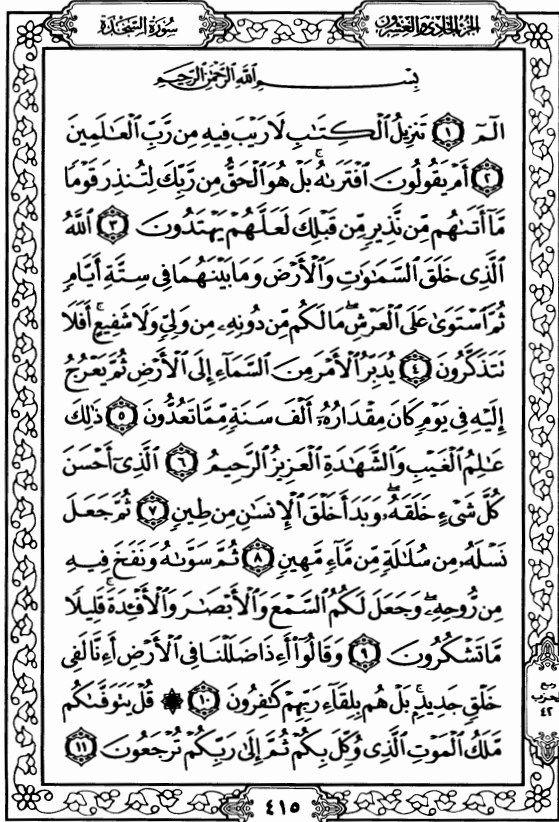 سُورَةُ السَّجْدَةِ
الجُزْءُ الحَادِي وَالعِشْرُونَ
بِسْمِ اللَّهِ الرَّحْمَٰنِ الرَّحِيمِ
الٓمٓ ١ تَنزِيلُ الْكِتَٰبِ لَا رَيْبَ فِيهِ مِن رَّبِّ الْعَٰلَمِينَ
٢ أَمْ يَقُولُونَ افْتَرَىٰهُ ۚ بَلْ هُوَ الْحَقُّ مِن رَّبِّكَ لِتُنذِرَ قَوْمًا
مَّآ أَتَىٰهُم مِّن نَّذِيرٍ مِّن قَبْلِكَ لَعَلَّهُمْ يَهْتَدُونَ ٣ اللَّهُ
الَّذِي خَلَقَ السَّمَٰوَٰتِ وَالْأَرْضَ وَمَا بَيْنَهُمَا فِي سِتَّةِ أَيَّامٍ
ثُمَّ اسْتَوَىٰ عَلَى الْعَرْشِ ۖ مَا لَكُم مِّن دُونِهِۦ مِن وَلِيٍّ وَلَا شَفِيعٍ ۚ أَفَلَا
تَتَذَكَّرُونَ ٤ يُدَبِّرُ الْأَمْرَ مِنَ السَّمَآءِ إِلَى الْأَرْضِ ثُمَّ يَعْرُجُ
إِلَيْهِ فِي يَوْمٍ كَانَ مِقْدَارُهُۥٓ أَلْفَ سَنَةٍ مِّمَّا تَعُدُّونَ ٥ ذَٰلِكَ
عَٰلِمُ الْغَيْبِ وَالشَّهَٰدَةِ الْعَزِيزُ الرَّحِيمُ ٦ الَّذِيٓ أَحْسَنَ
كُلَّ شَيْءٍ خَلَقَهُۥ ۖ وَبَدَأَ خَلْقَ الْإِنسَٰنِ مِن طِينٍ ٧ ثُمَّ جَعَلَ
نَسْلَهُۥ مِن سُلَٰلَةٍ مِّن مَّآءٍ مَّهِينٍ ٨ ثُمَّ سَوَّىٰهُ وَنَفَخَ فِيهِ
مِن رُّوحِهِۦ ۖ وَجَعَلَ لَكُمُ السَّمْعَ وَالْأَبْصَٰرَ وَالْأَفْـِٔدَةَ ۚ قَلِيلًا
مَّا تَشْكُرُونَ ٩ وَقَالُوٓا۟ أَءِذَا ضَلَلْنَا فِي الْأَرْضِ أَءِنَّا لَفِي
خَلْقٍ جَدِيدٍۭ ۚ بَلْ هُم بِلِقَآءِ رَبِّهِمْ كَٰفِرُونَ ١٠ ۞ قُلْ يَتَوَفَّىٰكُم
مَّلَكُ الْمَوْتِ الَّذِي وُكِّلَ بِكُمْ ثُمَّ إِلَىٰ رَبِّكُمْ تُرْجَعُونَ ١١
ربع
الحزب
٤٢
٤١٥